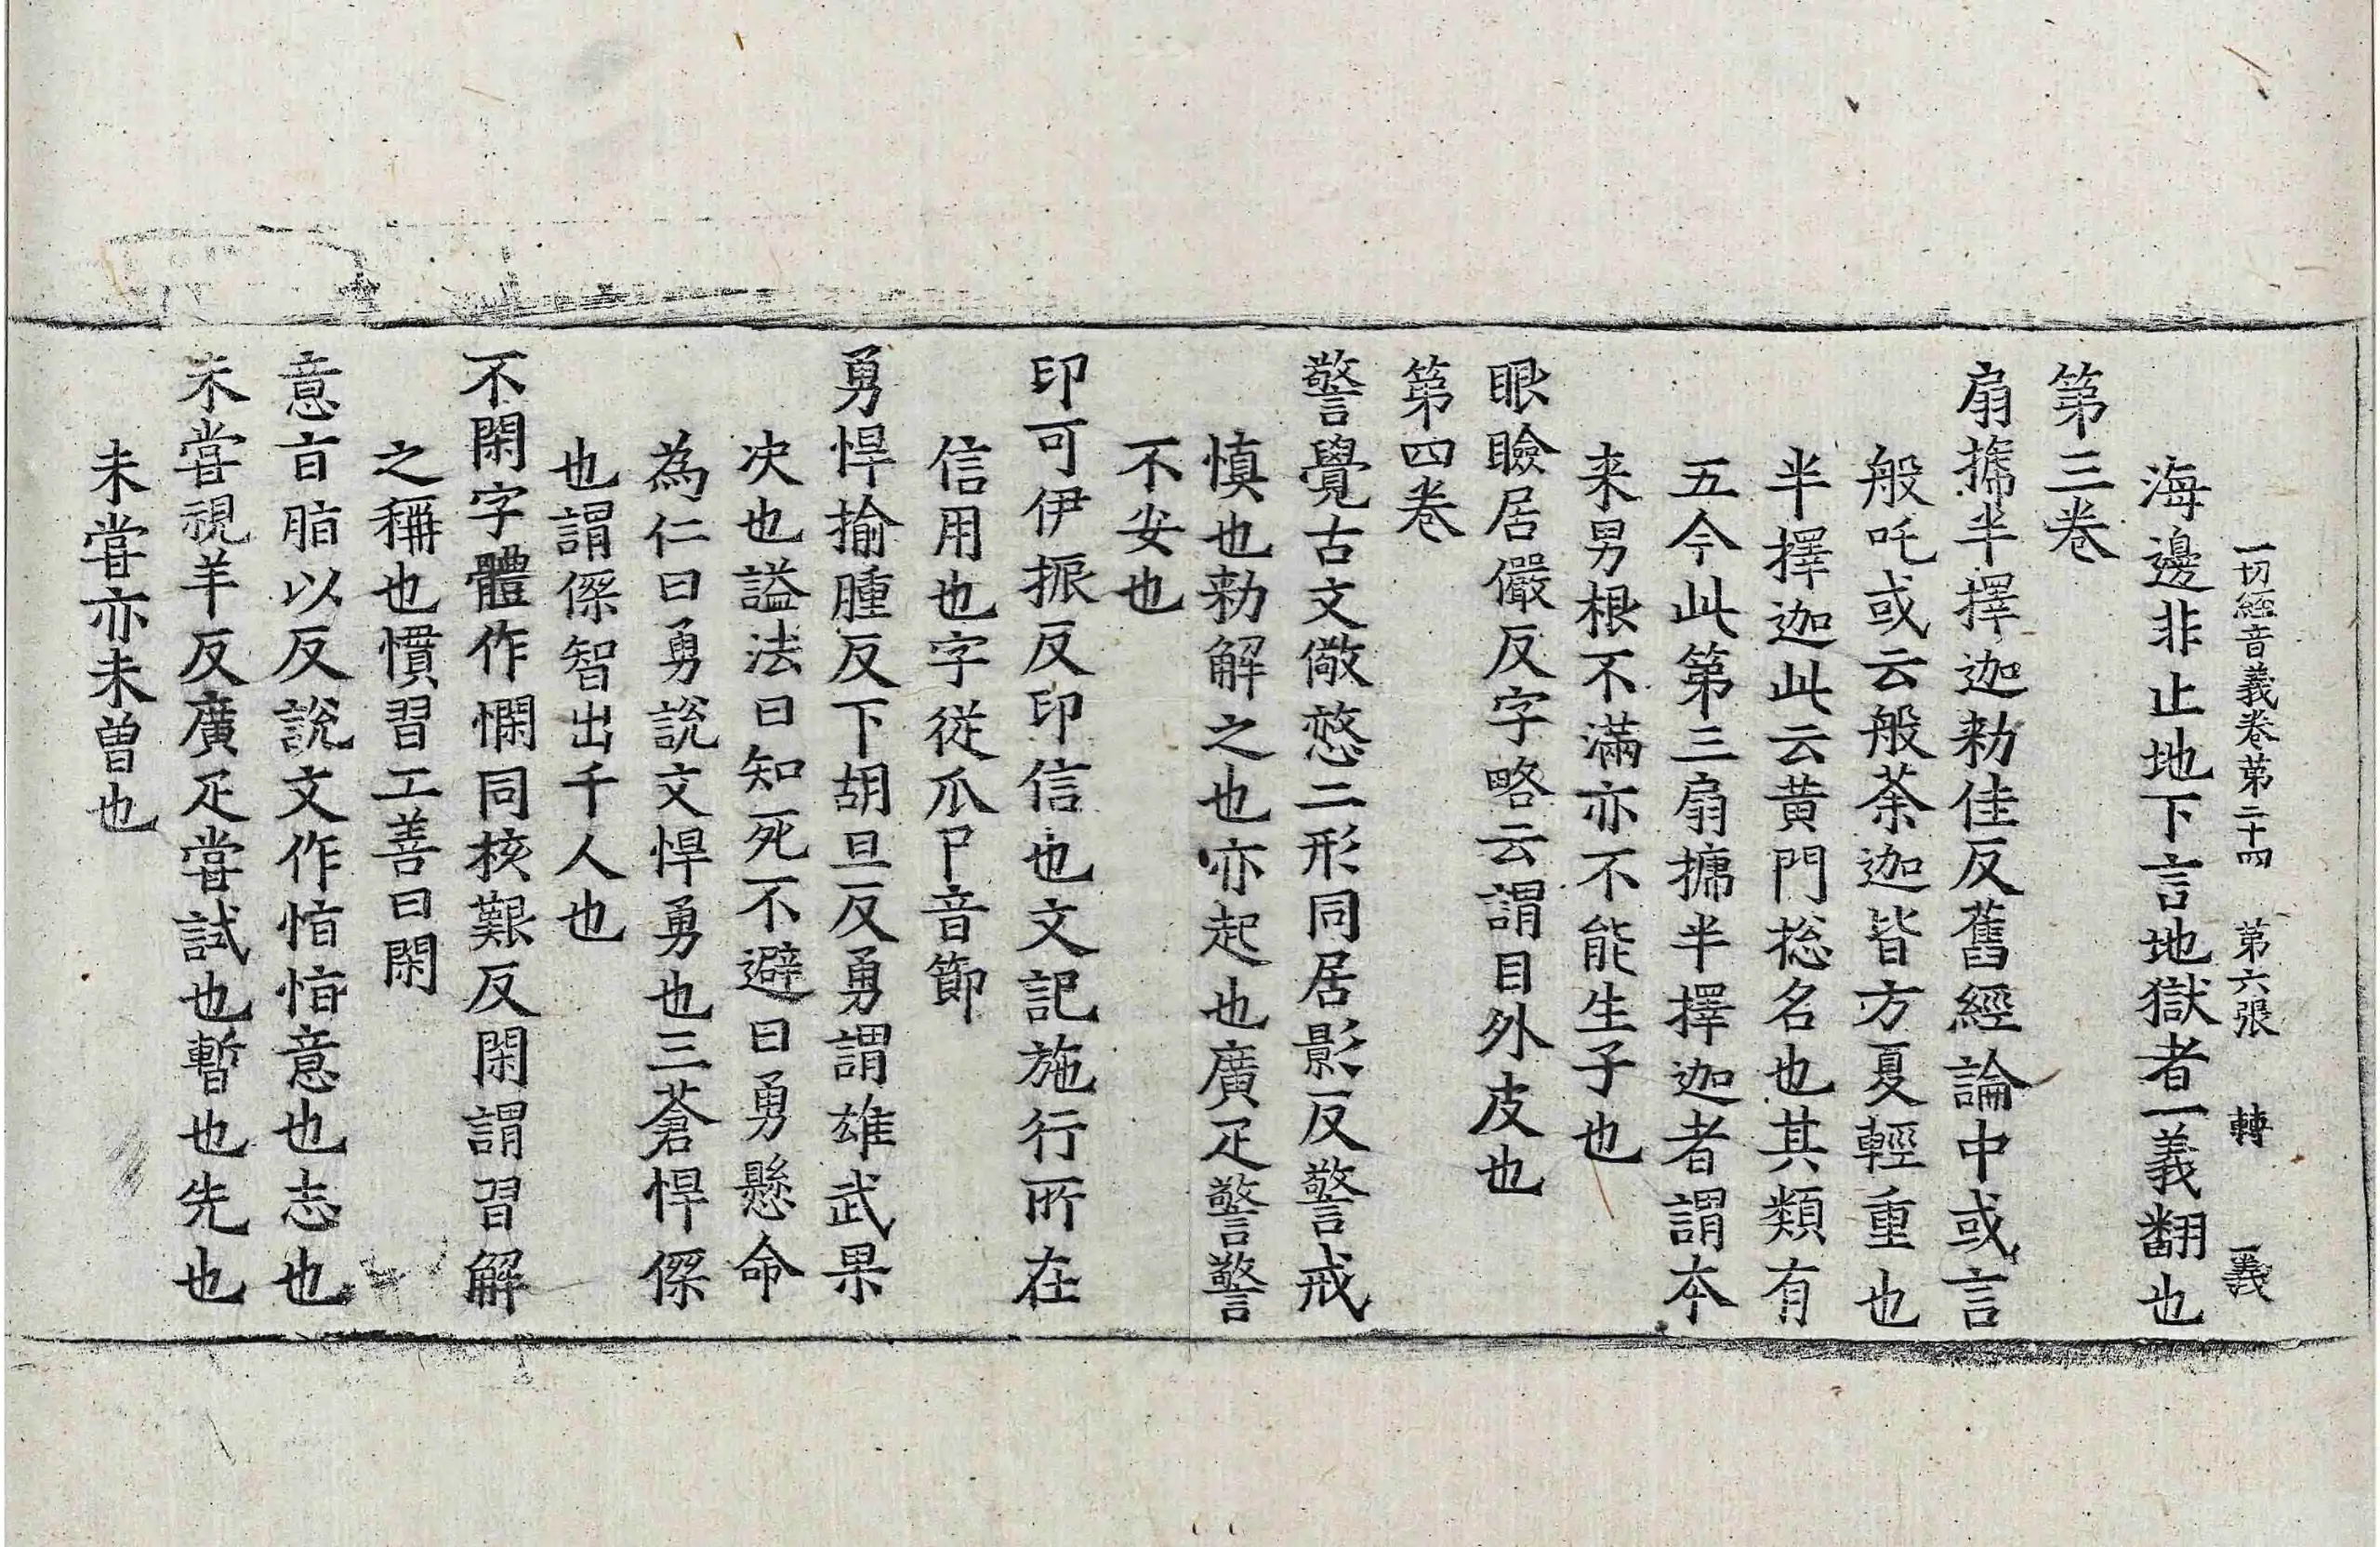 一切経音義卷苐二十四　苐六張　轉　義
海邊非止地下言地獄者一義翻也
苐三卷
扇搋半擇迦勑佳反舊經論中或言
般吒或云般荼迦皆方夏輕重也
半擇迦此云黄門捴名也其類有
五今此第三扇搋半擇迦者謂夲
来男根不滿亦不能生子也
眼瞼居儼反字略云謂目外皮也
苐四卷
警覺古文儆憼二形同居影反警戒
慎也勑解之也亦起也廣疋警警
不安也
印可伊振反印信也文記施行所在
信用也字從爪卪音節
勇悍揄腫反下胡旦反勇謂雄武果
决也謚法曰知死不避曰勇懸命
為仁曰勇說文悍勇也三蒼悍傑
也謂傑智出千人也
不閑字體作憪同核艱反閑謂習解
之稱也慣習工善曰閑
意㫖脂以反說文作恉恉意也志也
未甞視羊反廣疋甞試也暫也先也
未甞亦未曽也